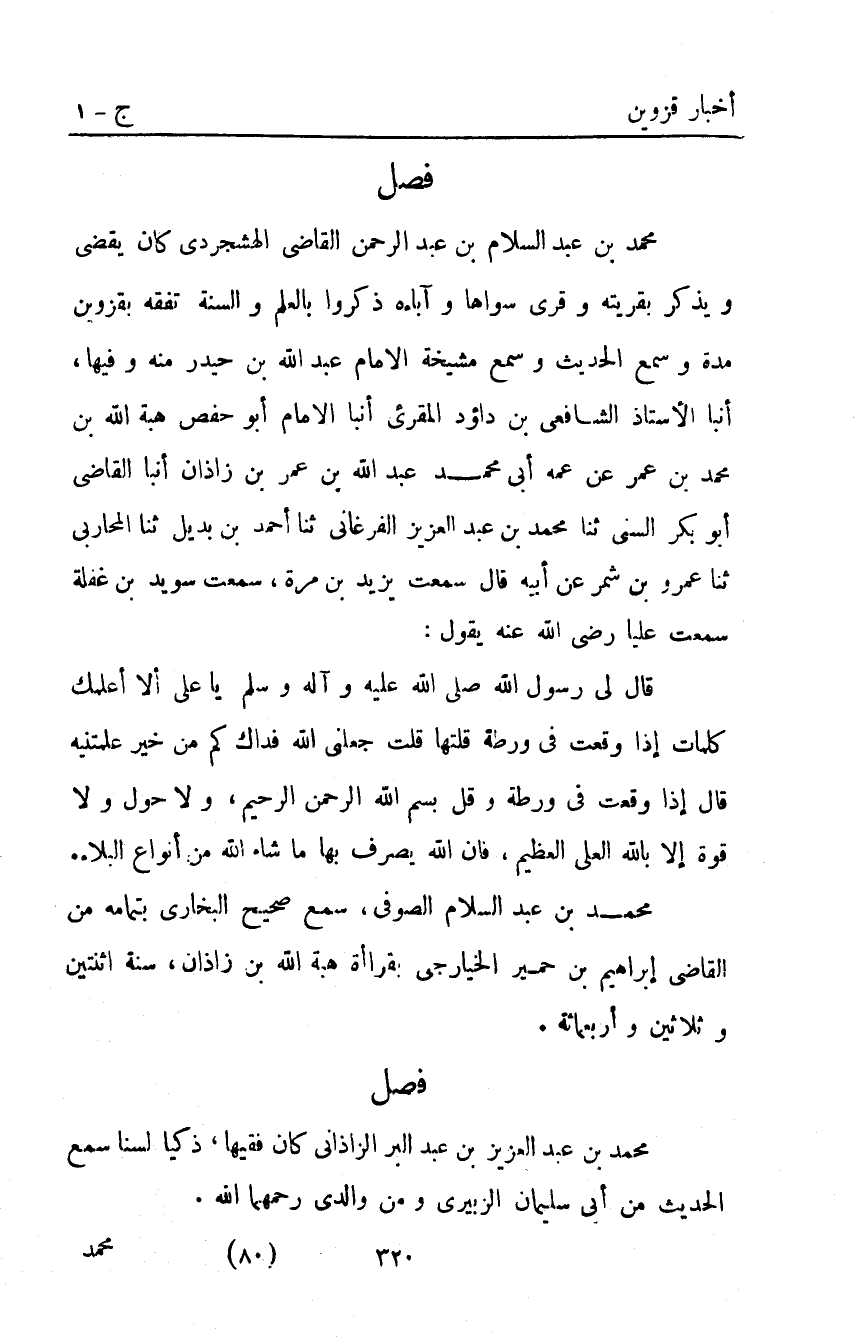 أخبار قزوين ج - ١
فصل
محمد بن عبد السلام بن عبد الرحمن القاضى الهشجردى كان يقضى
و يذكر بقريته و قرى سواها و آباءه ذكروا بالعلم و السنة تفقه بقزوين
مدة و سمع الحديث و سمع مشيخة الامام عبد الله بن حيدر منه و فيها،
أنبا الأستاذ الشافعى بن داؤد المقرئ أنبا الامام أبو حفص هبة الله بن
محمد بن عمر عن عمه أبى محمد عبد الله بن عمر بن زاذان أنبا القاضى
أبو بكر السنى ثنا محمد بن عبد العزيز الفرغانى ثنا أحمد بن بديل ثنا المحاربى
ثنا عمرو بن شمر عن أبيه قال سمعت يزيد بن مرة، سمعت سويد بن غفلة
سمعت عليا رضى الله عنه يقول :
قال لى رسول الله صلى الله عليه و آله و سلم يا على ألا أعلمك
كلمات إذا وقعت فى ورطة قلتها قلت جعلنى الله فداك كم من خير علمتنيه
قال إذا وقعت فى ورطة و قل بسم الله الرحمن الرحيم، و لا حول و لا
قوة إلا بالله العلى العظيم، فان الله يصرف بها ما شاء الله من أنواع البلاء.
محمد بن عبد السلام الصوفى، سمع صحيح البخارى بتمامه من
القاضى إبراهيم بن حمير الخيارجى بقراأة هبة الله بن زاذان، سنة اثنتين
و ثلاثين و أربعمائة .
فصل
محمد بن عبد العزيز بن عبد البر الزاذانى كان فقيها، ذكيا لسنا سمع
الحديث من أبى سليمان الزبيرى و من والدى رحمهما الله .
٣٢٠ (٨٠) محمد